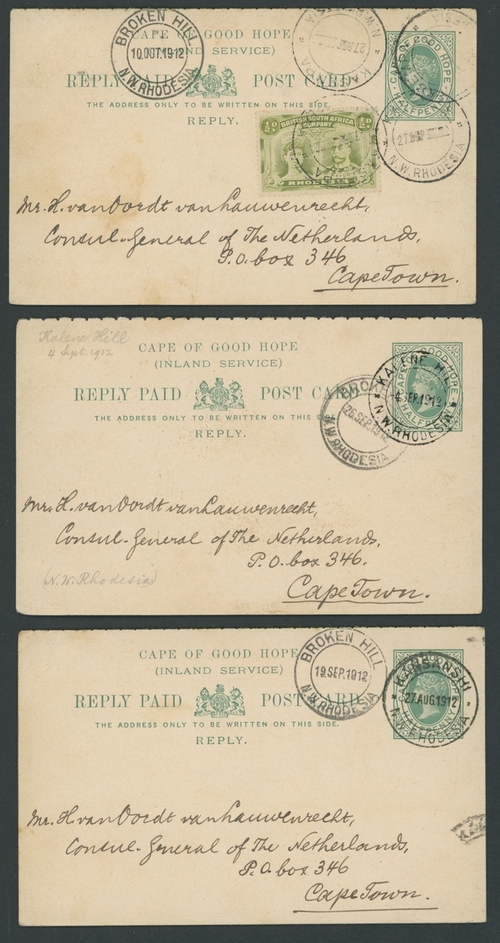 BROKEN HILL
10.OCT.1912
N.W. RHODESIA
N.W.RH
27
CAPE OF GOOD HOPE
(INLAND SERVICE)
REPLY PAID POST CARD
THE ADDRESS ONLY TO BE WRITTEN ON THIS SIDE.
REPLY.
CAPE OF GOOD HOPE
HALFPENNY
½D BRITISH SOUTH AFRICA COMPANY ½D
RHODESIA
27
N.W. RHODESIA
Mr. H. van Oordt van Lauwenrecht,
Consul-General of The Netherlands,
P.O. box 346
Cape Town.
Kalene Hill
4 Sept. 1912
CAPE OF GOOD HOPE
(INLAND SERVICE)
REPLY PAID POST CARD
THE ADDRESS ONLY TO BE WRITTEN ON THIS SIDE
REPLY.
BROK
26.SEP.1912
N.W. RHODESIA
KALENE HILL
4 SEP.1912
N.W. RHODESIA
Mr. H. van Oordt van Lauwenrecht,
Consul-General of The Netherlands,
P.O. box 346.
Cape Town.
(N.W. Rhodesia)
CAPE OF GOOD HOPE
(INLAND SERVICE)
REPLY PAID POST CARD
THE ADDRESS ONLY TO BE WRITTEN ON THIS SIDE.
REPLY.
BROKEN HILL
19.SEP.1912
N.W. RHODESIA
KANSANSHI
27.AUG.1912
N.W. RHODESIA
Mr. H. van Oordt van Lauwenrecht,
Consul-General of The Netherlands,
P.O. box 346
Cape Town.